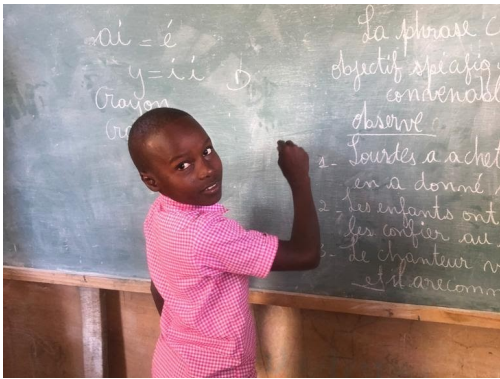 ai = é
y = i i D
Crayon
Cra
La phrase c
objectif spécifiq
convenabl
observe
1- Lourdes a achet
en a donné
2- Les enfants ont
les confier au
3- Le chanteur v
et il a recomm